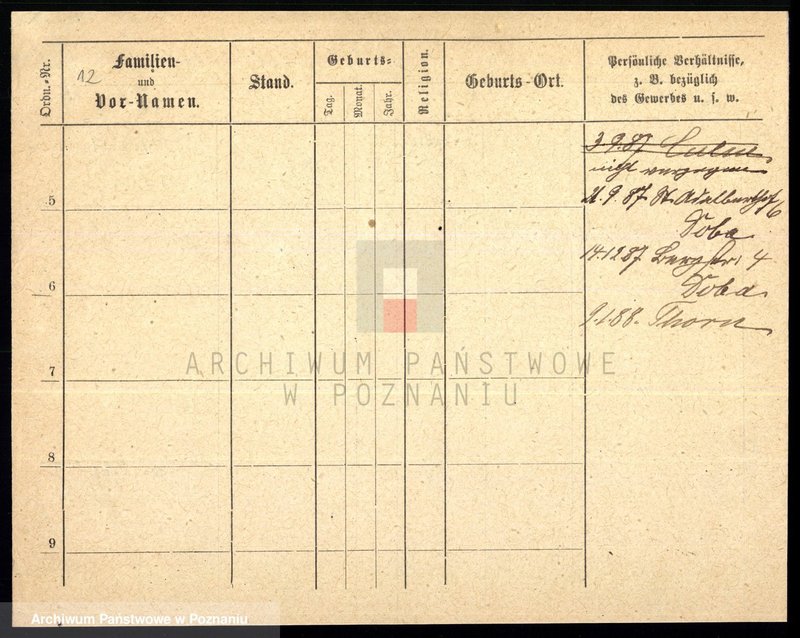 Ordn.-Nr.
12
Familien-
und
Vor-Namen.
Stand.
Geburts-
Tag.
Monat.
Jahr.
Religion.
Geburts-Ort.
Persönliche Verhältnisse,
z. B. bezüglich
des Gewerbes u. s. w.
3.9.87 Culm
nicht
5
21.9.87 St. Adalbertstr 6
Doba
14.12.87 Bergstr. 4
6
Doba
9.1.88. Thorn
ARCHIWUM PAŃSTWOWE
W POZNANIU
7
8
9
Archiwum Państwowe w Poznaniu